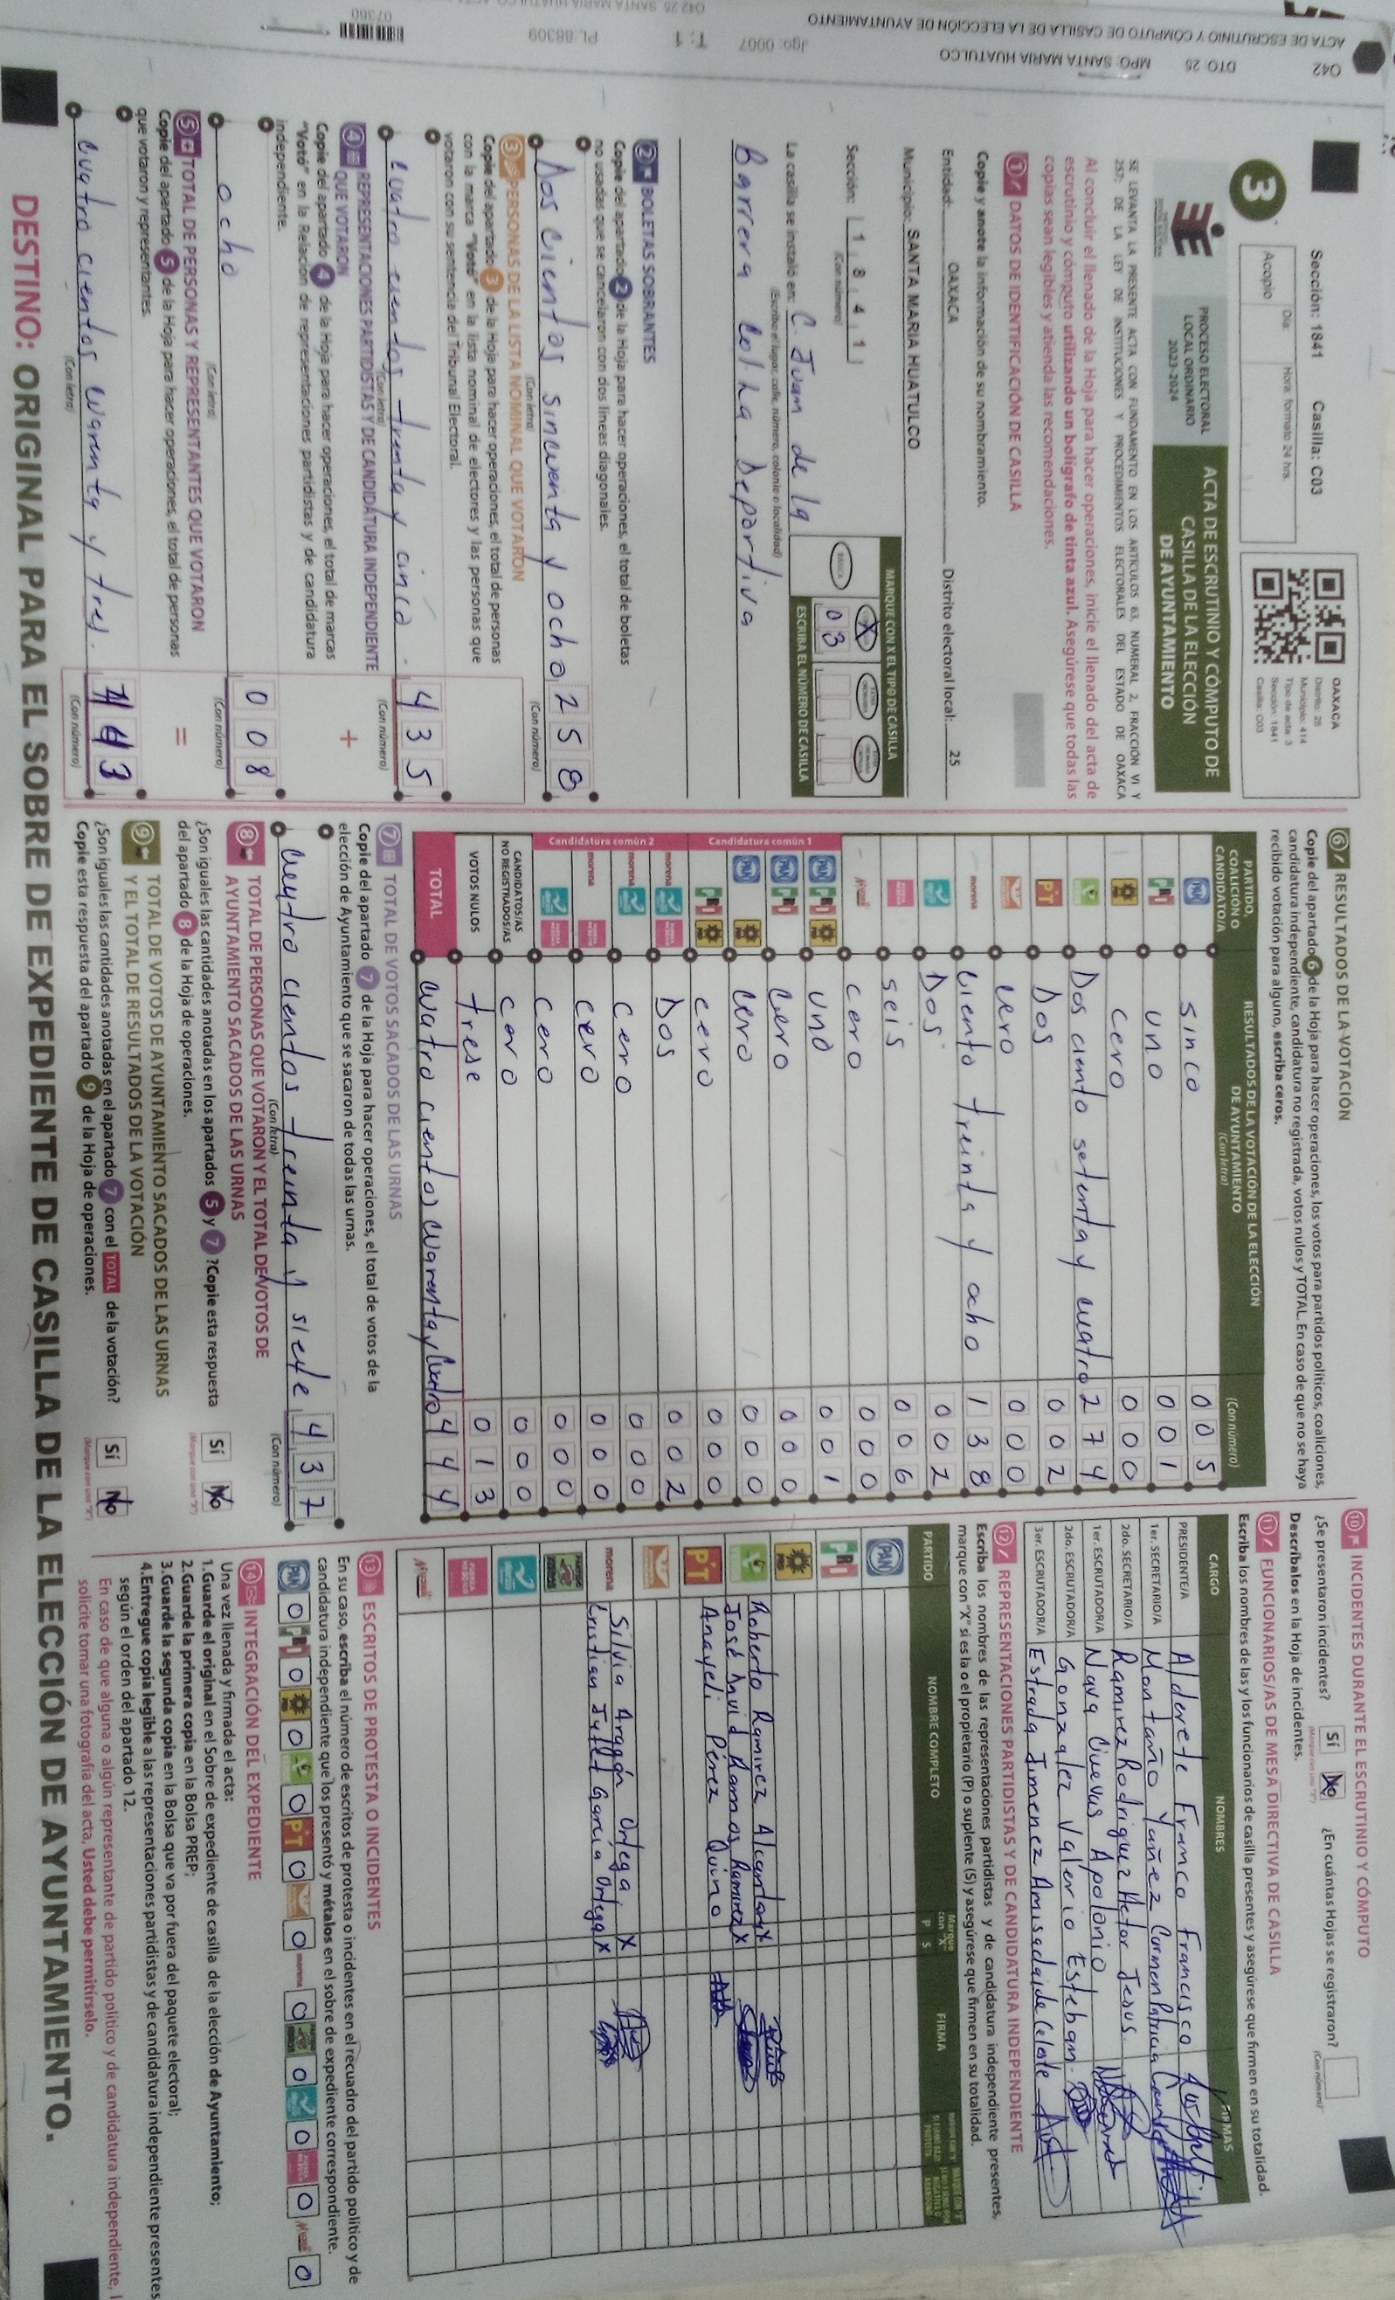 Sección: 1841 Casilla: C03
Día: Hora: formato 24 hrs.
Acopio
3
OAXACA
Distrito: 25
Municipio: 414
Tipo de acta: 3
Sección: 1841
Casilla: C03
PROCESO ELECTORAL
LOCAL ORDINARIO
2023-2024
ACTA DE ESCRUTINIO Y CÓMPUTO DE
CASILLA DE LA ELECCIÓN
DE AYUNTAMIENTO
SE LEVANTA LA PRESENTE ACTA CON FUNDAMENTO EN LOS ARTÍCULOS 63, NUMERAL 2, FRACCIÓN VI Y
257; DE LA LEY DE INSTITUCIONES Y PROCEDIMIENTOS ELECTORALES DEL ESTADO DE OAXACA
Al concluir el llenado de la Hoja para hacer operaciones, inicie el llenado del acta de
escrutinio y cómputo utilizando un bolígrafo de tinta azul. Asegúrese que todas las
copias sean legibles y atienda las recomendaciones.
1 DATOS DE IDENTIFICACIÓN DE CASILLA
Copie y anote la información de su nombramiento.
Entidad: OAXACA Distrito electoral local: 25
Municipio: SANTA MARIA HUATULCO
Sección: 1 8 4 1
(Con número)
MARQUE CON X EL TIPO DE CASILLA
BÁSICA X
03
ESCRIBA EL NÚMERO DE CASILLA
La casilla se instaló en: C. Juan de la
(Escriba el lugar, calle, número, colonia o localidad)
Barrera Col. La Deportiva
2 BOLETAS SOBRANTES
Copie del apartado 2 de la Hoja para hacer operaciones, el total de boletas
no usadas que se cancelaron con dos líneas diagonales.
Dos cientos sincuenta y ocho 258
(Con letra) (Con número)
3 PERSONAS DE LA LISTA NOMINAL QUE VOTARON
Copie del apartado 3 de la Hoja para hacer operaciones, el total de personas
con la marca "Votó" en la lista nominal de electores y las personas que
votaron con su sentencia del Tribunal Electoral.
Cuatro cientos treinta y cinco. 435
(Con letra) (Con número)
4 REPRESENTACIONES PARTIDISTAS Y DE CANDIDATURA INDEPENDIENTE
QUE VOTARON +
Copie del apartado 4 de la Hoja para hacer operaciones, el total de marcas
"Votó" en la Relación de representaciones partidistas y de candidatura
independiente.
ocho 008
(Con letra) (Con número)
5 TOTAL DE PERSONAS Y REPRESENTANTES QUE VOTARON =
Copie del apartado 5 de la Hoja para hacer operaciones, el total de personas
que votaron y representantes.
Cuatro cientos cuarenta y tres. 443
(Con letra) (Con número)
6 RESULTADOS DE LA VOTACIÓN
Copie del apartado 6 de la Hoja para hacer operaciones, los votos para partidos políticos, coaliciones,
candidatura independiente, candidatura no registrada, votos nulos y TOTAL. En caso de que no se haya
recibido votación para alguno, escriba ceros.
PARTIDO, COALICIÓN O CANDIDATO/A RESULTADOS DE LA VOTACIÓN DE LA ELECCIÓN DE AYUNTAMIENTO (Con letra) (Con número)
PAN sinco 005
PRI uno 001
PRD cero 000
Dos ciento setenta y cuatro 274
PT Dos 002
cero 000
morena Ciento treinta y ocho 138
Dos 002
seis 006
cero 000
Candidatura común 1
PAN PRI PRD uno 001
PAN PRI cero 000
PAN PRD cero 000
PRI PRD cero 000
Candidatura común 2
morena Dos 002
morena cero 000
morena cero 000
cero 000
CANDIDATOS/AS NO REGISTRADOS/AS cero 000
VOTOS NULOS trese 013
TOTAL cuatro cientos cuarenta y cuatro 444
7 TOTAL DE VOTOS SACADOS DE LAS URNAS
Copie del apartado 7 de la Hoja para hacer operaciones, el total de votos de la
elección de Ayuntamiento que se sacaron de todas las urnas.
Cuatro cientos treinta y siete 437
(Con letra) (Con número)
8 TOTAL DE PERSONAS QUE VOTARON Y EL TOTAL DE VOTOS DE
AYUNTAMIENTO SACADOS DE LAS URNAS
¿Son iguales las cantidades anotadas en los apartados 5 y 7 ? Copie esta respuesta
del apartado 8 de la Hoja de operaciones.
Sí No
9 TOTAL DE VOTOS DE AYUNTAMIENTO SACADOS DE LAS URNAS
Y EL TOTAL DE RESULTADOS DE LA VOTACIÓN
¿Son iguales las cantidades anotadas en el apartado 7 con el TOTAL de la votación?
Copie esta respuesta del apartado 9 de la Hoja de operaciones.
Sí No
10 INCIDENTES DURANTE EL ESCRUTINIO Y CÓMPUTO
¿Se presentaron incidentes? Sí No ¿En cuántas Hojas se registraron?
Descríbalos en la Hoja de incidentes.
11 FUNCIONARIOS/AS DE MESA DIRECTIVA DE CASILLA
Escriba los nombres de las y los funcionarios de casilla presentes y asegúrese que firmen en su totalidad.
CARGO NOMBRES FIRMAS
PRESIDENTE/A Alderete Franco Francisco
1er. SECRETARIO/A Montaño Yañez Carmen Patricia
2do. SECRETARIO/A Ramirez Rodriguez Hetor Jesus
1er. ESCRUTADOR/A Nava Cuevas Apolonio
2do. ESCRUTADOR/A Gonzalez Valerio Esteban.
3er. ESCRUTADOR/A Estrada Jimenez Amisadaide Celeste
12 REPRESENTACIONES PARTIDISTAS Y DE CANDIDATURA INDEPENDIENTE
Escriba los nombres de las representaciones partidistas y de candidatura independiente presentes,
marque con "X" si es la o el propietario (P) o suplente (S) y asegúrese que firmen en su totalidad.
PARTIDO NOMBRE COMPLETO Marque con "X" P S FIRMA
PAN
PRI
PRD Roberto Ramirez Alcantara X
José David Ramos Ramirez X
PT Anayeli Pérez Quino
morena Silvia Aragón Ortega X
Cristian Jafet Garcia Ortega X
13 ESCRITOS DE PROTESTA O INCIDENTES
En su caso, escriba el número de escritos de protesta o incidentes en el recuadro del partido político y de
candidatura independiente que los presentó y métalos en el sobre de expediente correspondiente.
PAN 0 PRI 0 PRD 0 0 PT 0 0 morena 0 0 0 0 0
14 INTEGRACIÓN DEL EXPEDIENTE
Una vez llenada y firmada el acta:
1.Guarde el original en el Sobre de expediente de casilla de la elección de Ayuntamiento;
2.Guarde la primera copia en la Bolsa PREP;
3.Guarde la segunda copia en la Bolsa que va por fuera del paquete electoral;
4.Entregue copia legible a las representaciones partidistas y de candidatura independiente presentes
según el orden del apartado 12.
En caso de que alguna o algún representante de partido político y de candidatura independiente,
solicite tomar una fotografía del acta, Usted debe permitírselo.
DESTINO: ORIGINAL PARA EL SOBRE DE EXPEDIENTE DE CASILLA DE LA ELECCIÓN DE AYUNTAMIENTO.
042 DTO 25 MPO: SANTA MARIA HUATULCO
ACTA DE ESCRUTINIO Y CÓMPUTO DE CASILLA DE LA ELECCIÓN DE AYUNTAMIENTO
Jgo: 0007 T: 1 PL: 88309
07360